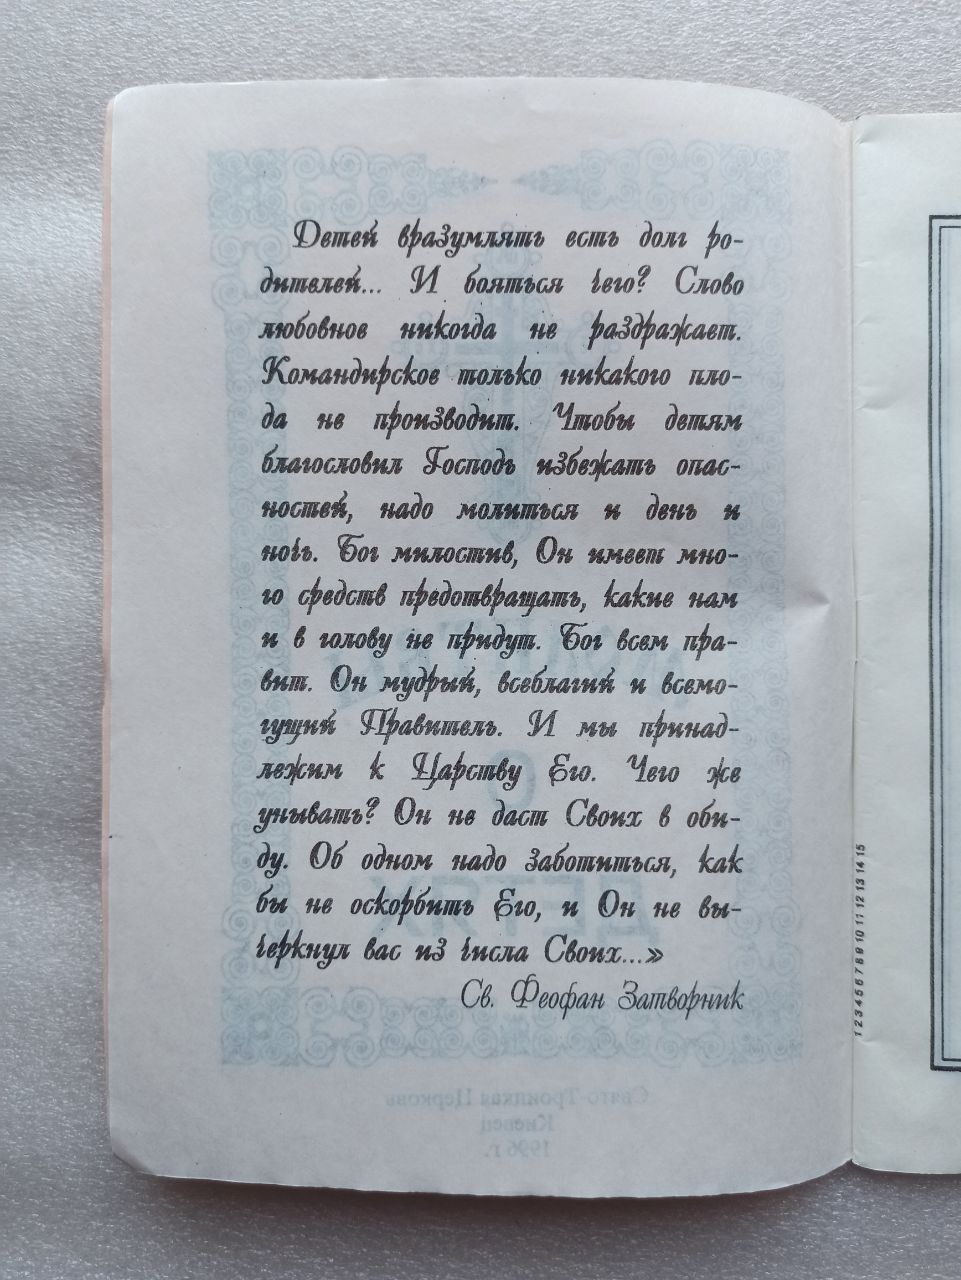 Детей вразумлять есть долг ро-
дителей... И бояться чего? Слово
любовное никогда не раздражает.
Командирское только никакого пло-
да не производит. Чтобы детям
благословил Господь избежать опас-
ностей, надо молиться и день и
ночь. Бог милостив, Он имеет мно-
го средств предотвращать, какие нам
и в голову не придут. Бог всем пра-
вит. Он мудрый, всеблагий и всемо-
гущий Правитель. И мы принад-
лежим к Царству Его. Чего же
унывать? Он не даст Своих в оби-
ду. Об одном надо заботиться, как
бы не оскорбить Его, и Он не вы-
черкнул вас из числа Своих...»
Св. Феофан Затворник
1 2 3 4 5 6 7 8 9 10 11 12 13 14 15
О
ДЕТЯХ
Свято-Троицкая Церковь
Киевец
1996 г.